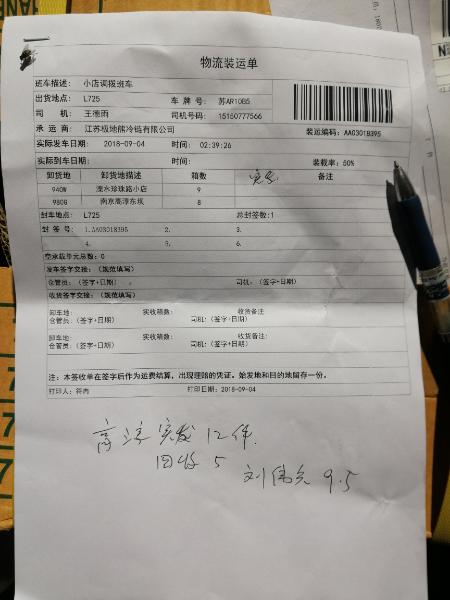 物流装运单
班车描述: 小店调拨班车
出货地点: L725 车 牌 号: 苏AR10B5
司 机: 王德雨 司机号码: 15150777566
承 运 商: 江苏极地熊冷链有限公司 装运编码: AA03018395
实际发车日期: 2018-09-04 时间: 02:39:26
实际到车日期: 时间: 装载率: 50%
卸货地 卸货地描述 箱数 实发 备注
940W 溧水珍珠路小店 9
980G 南京高淳东坝 8
封车地点: L725 总封签数:1
封 签 号: 1.AA03018395 2. 3.
4. 5. 6.
空承载单元总数: 0
发车签字交接: (规范填写)
仓管员: (签字+日期) 司机: (签字+日期)
收货签字交接: (规范填写)
卸车地: 实收箱数: 收货备注
仓管员: (签字+日期) 司机:(签字+日期)
卸车地: 实收箱数: 收货备注:
仓管员: (签字+日期) 司机:(签字+日期)
注: 本签收单在签字后作为运费结算, 出现理赔的凭证。始发地和目的地留存一份。
打印人: 打印日期: 2018-09-04
高淳实发12件.
回收 5
刘伟 9.5